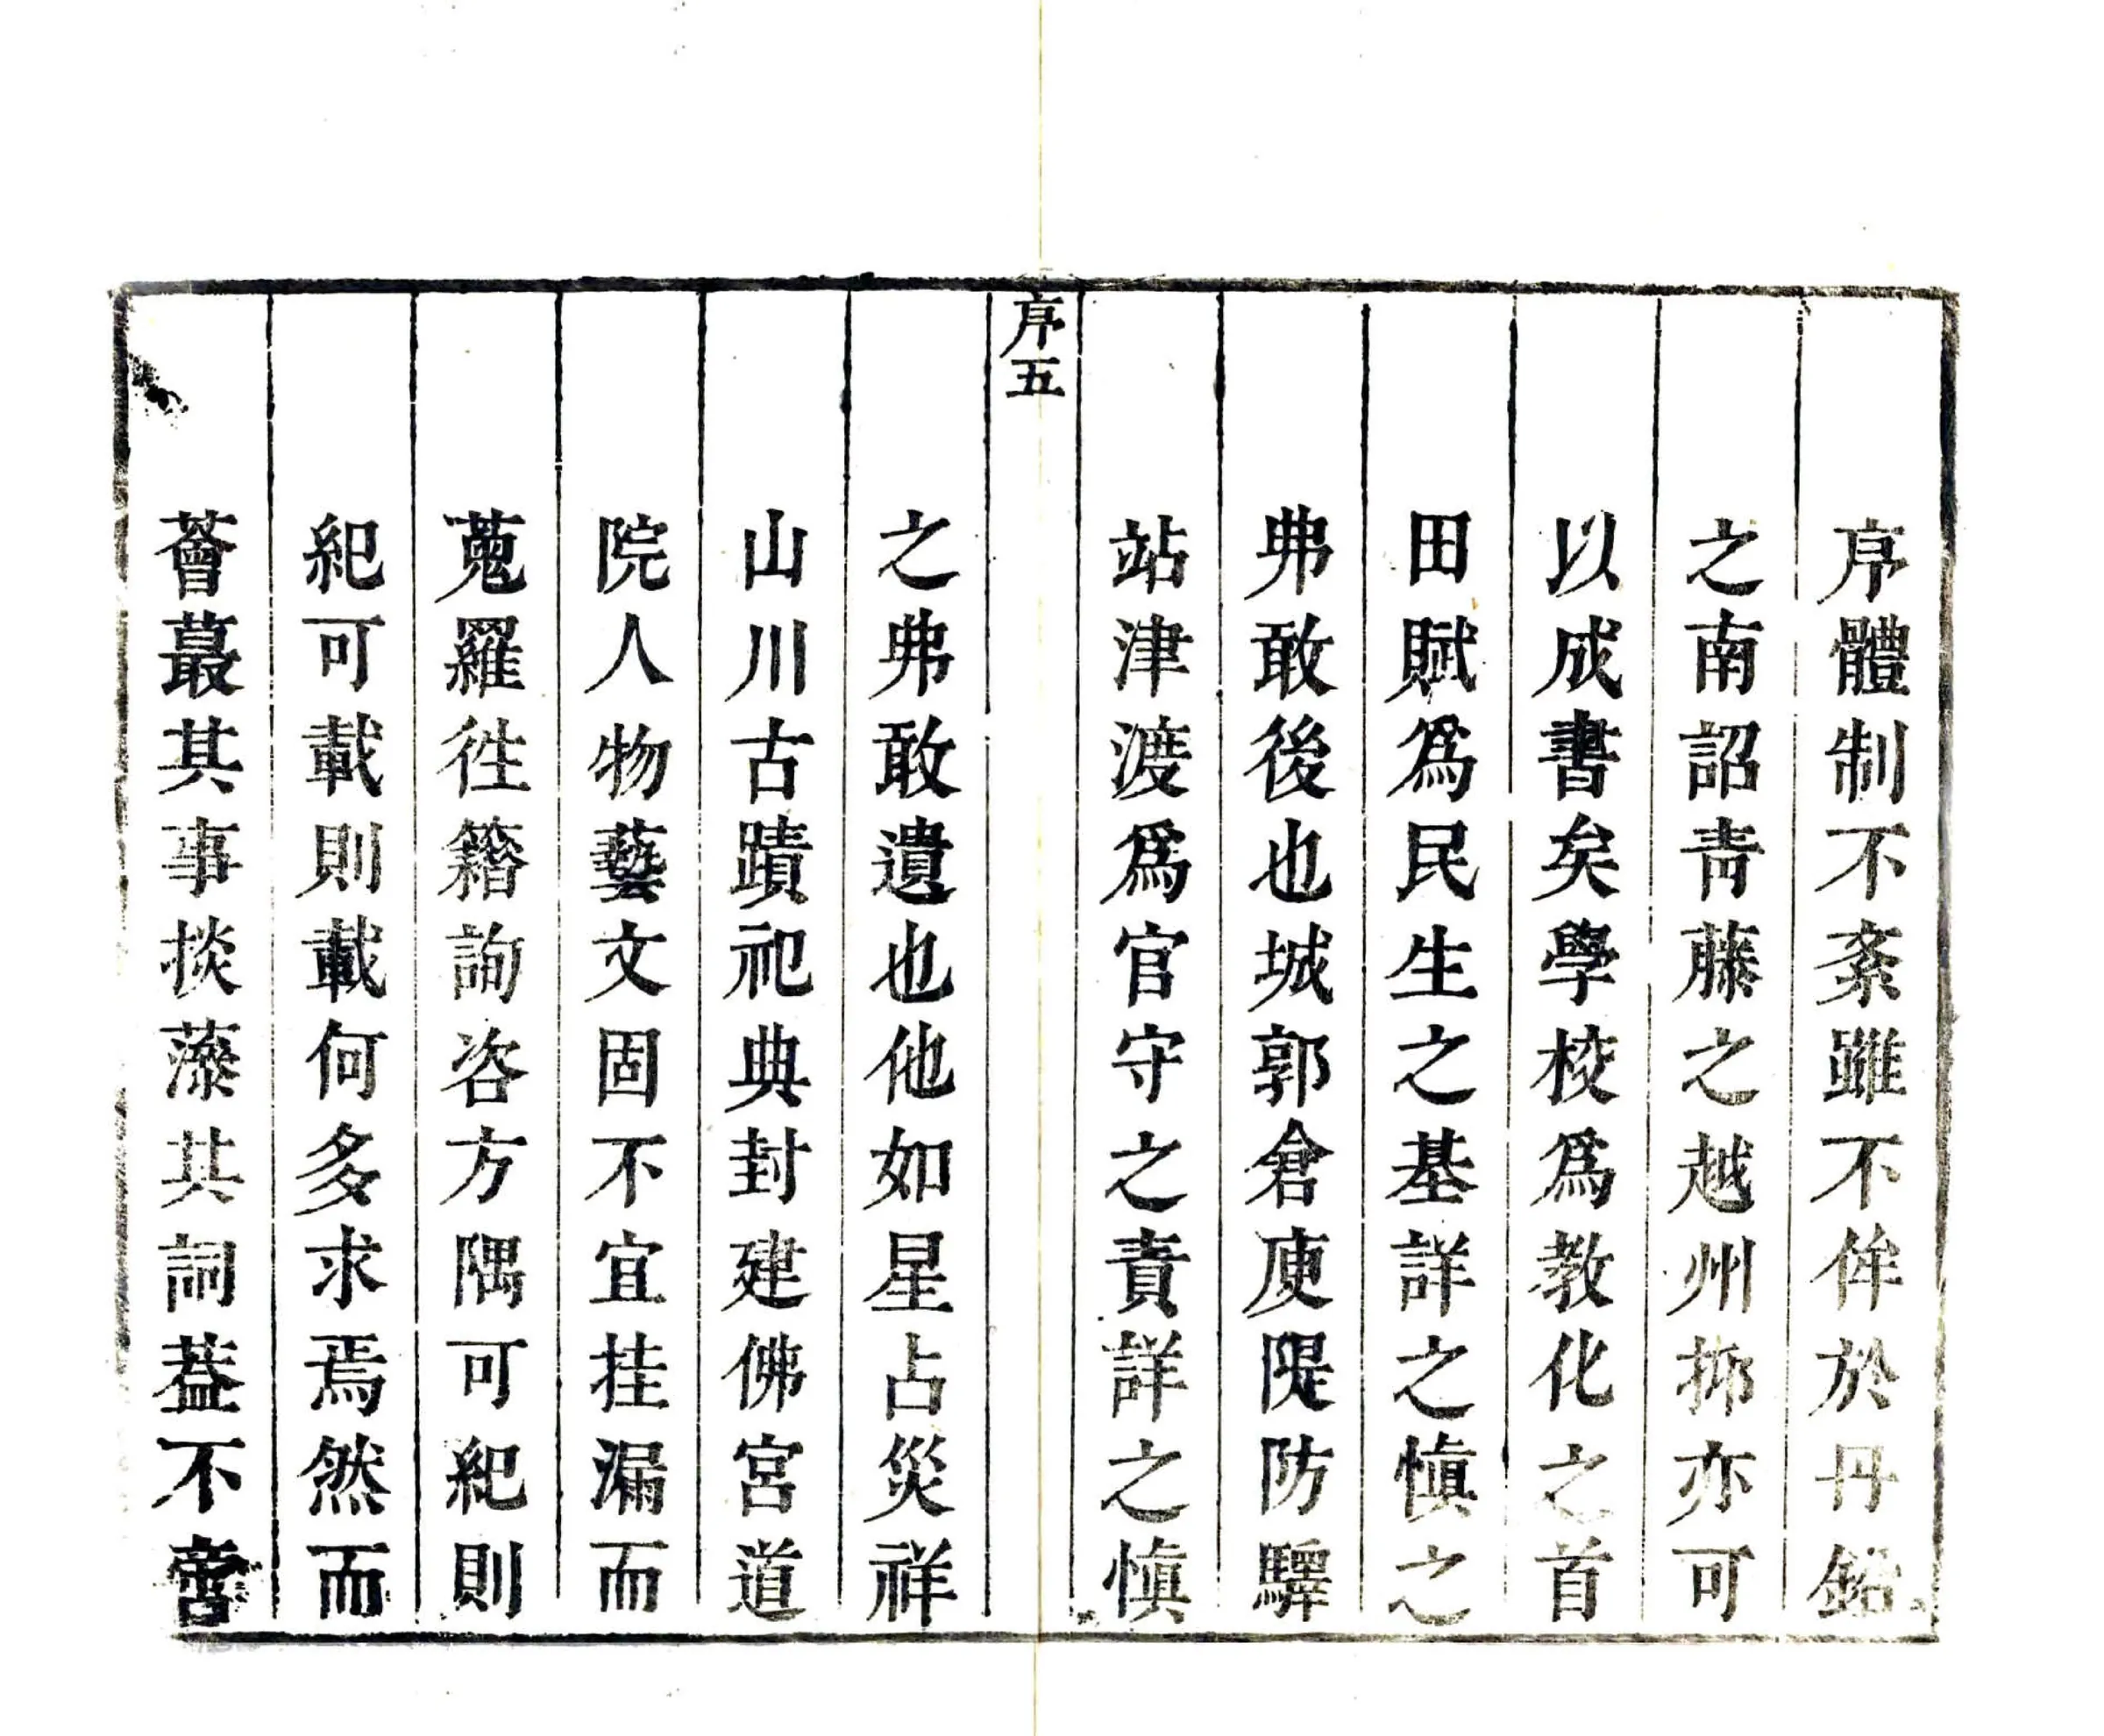 序體制不紊雖不侔於丹鉛
之南詔靑藤之越州抑亦可
以成書矣學校爲教化之首
田賦爲民生之基詳之愼之
弗敢後也城郭倉庾隄防驛
站津渡爲官守之責詳之愼
序五
之弗敢遺也他如星占災祥
山川古蹟祀典封建佛宮道
院人物藝文固不宜挂漏而
蒐羅徃籍詢咨方隅可紀則
紀可載則載何多求焉然而
薈蕞其事掞藻其詞葢不啻